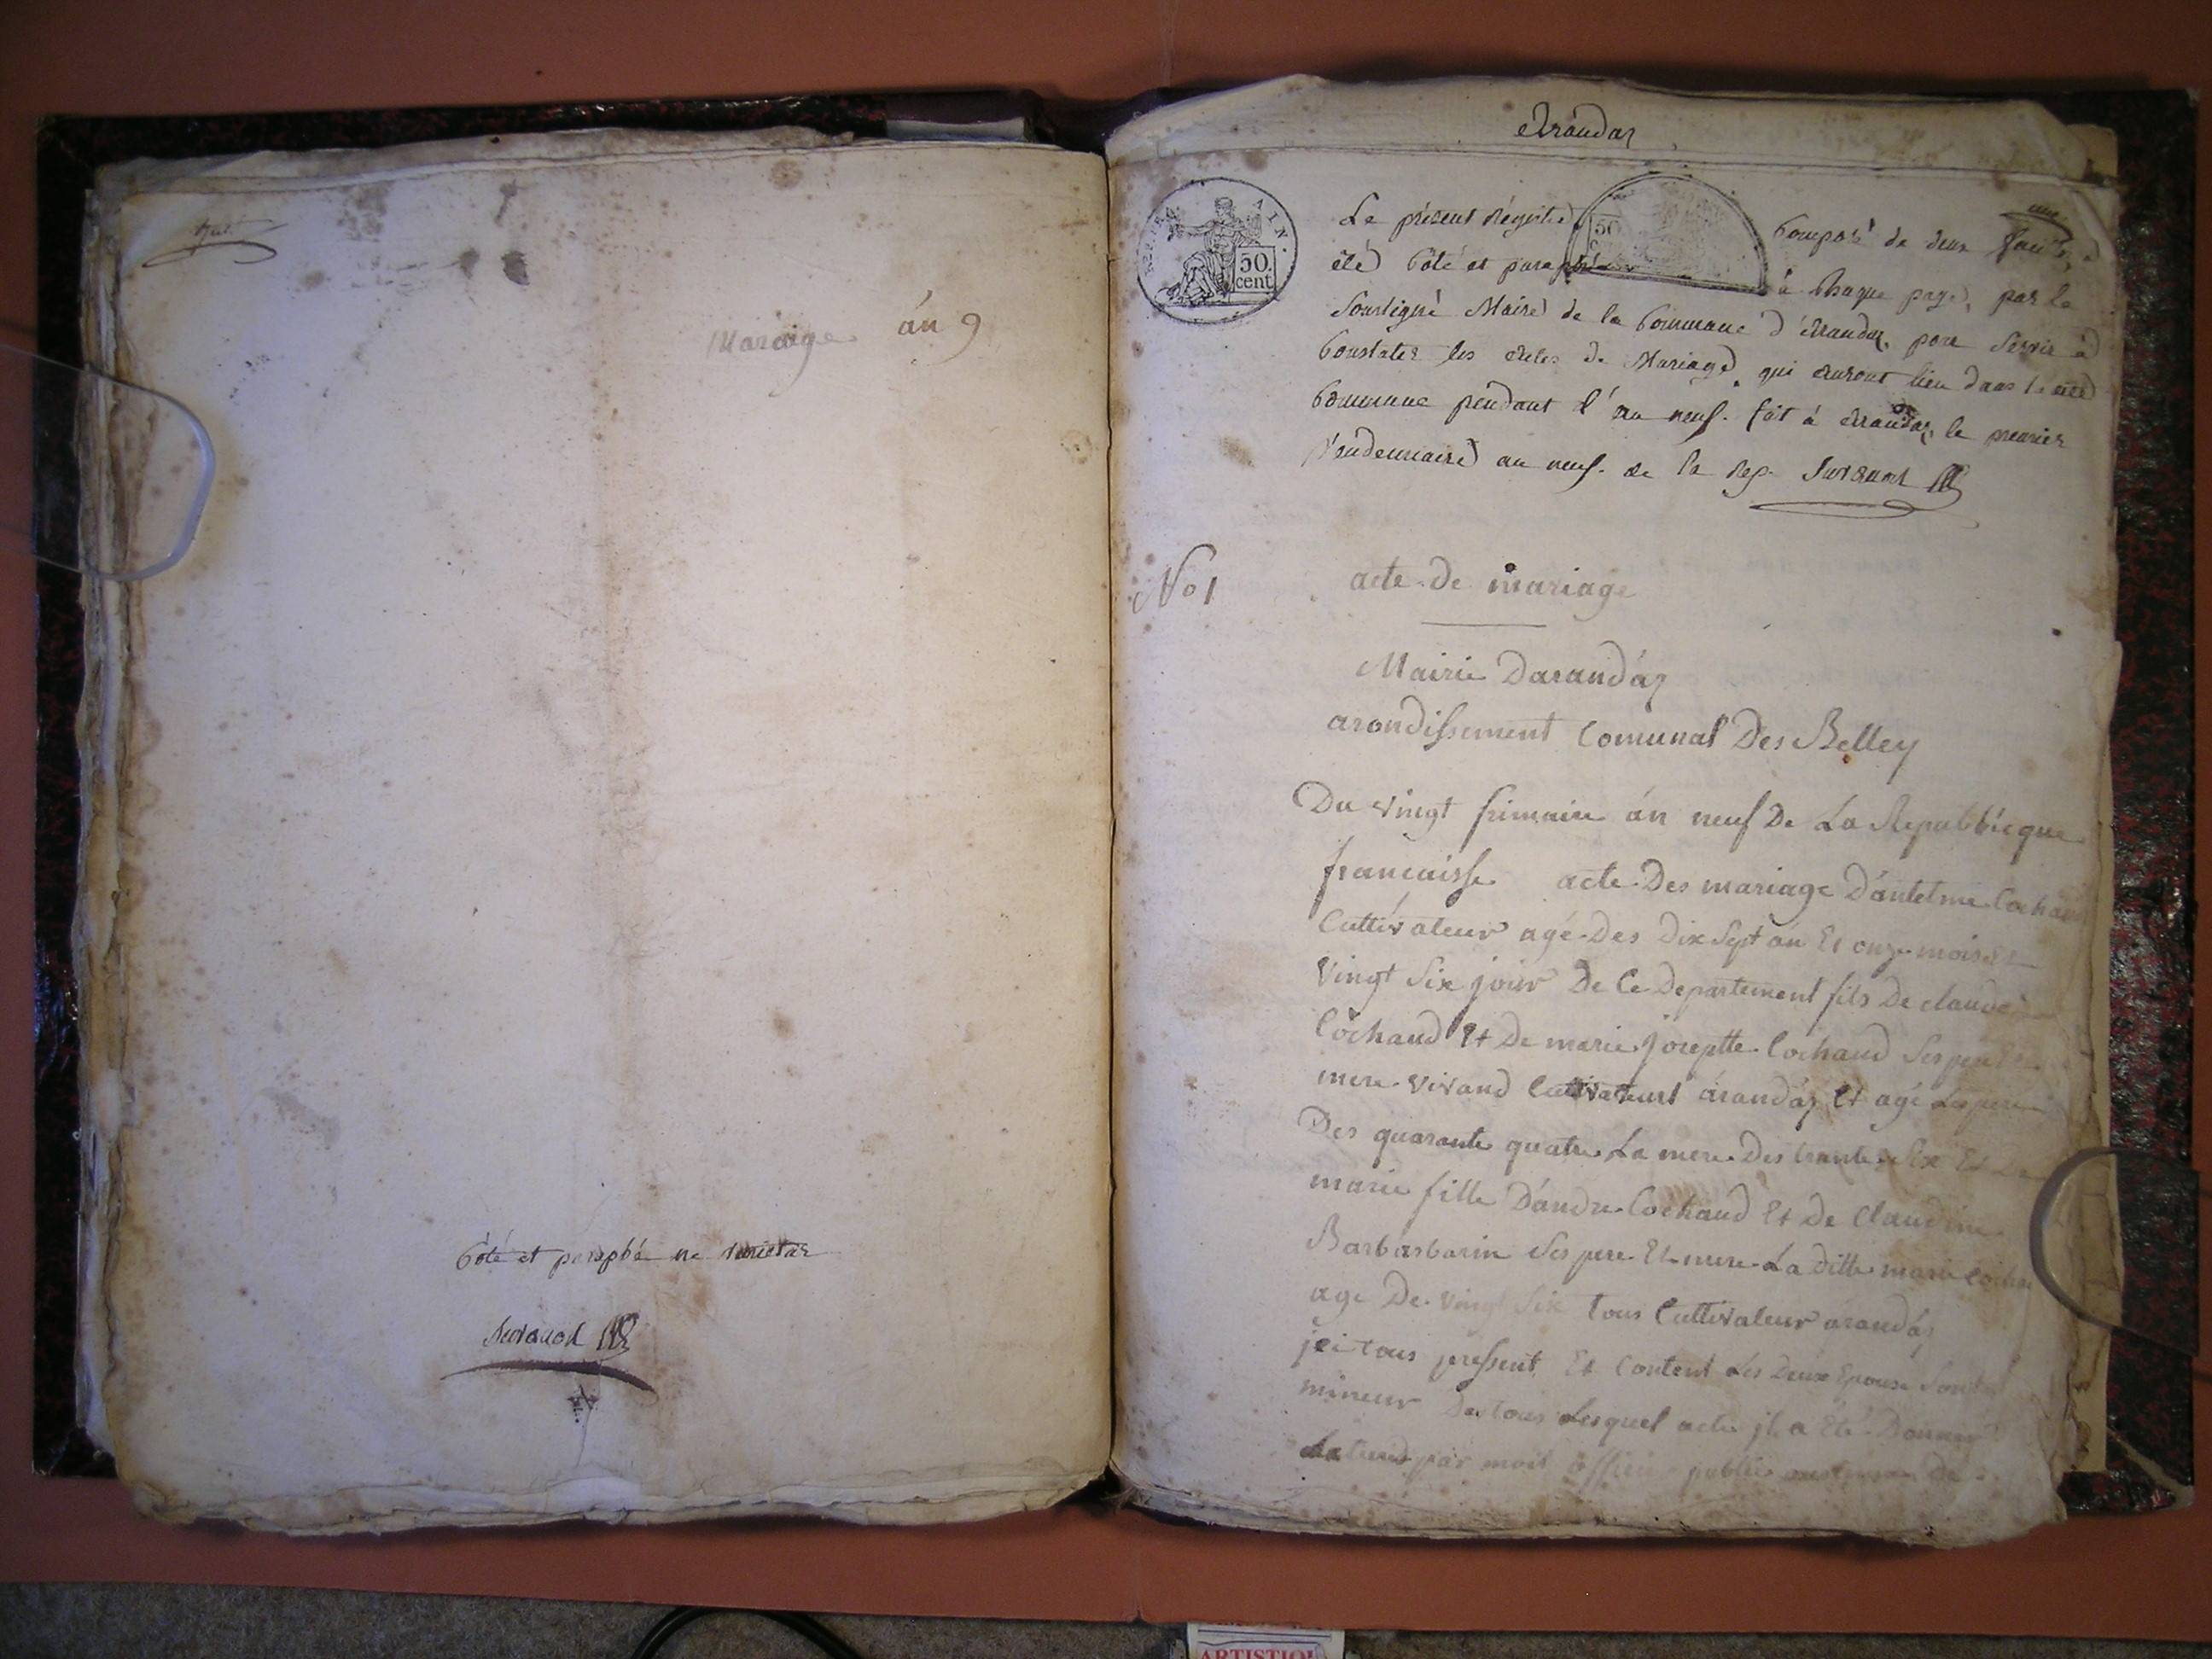 Mariage án 9
Côté et paraphé ne varietur
Arandas
AIN.
50.
cent
50
c
une
Le présent régistre Composé de deux
été Côté et paraphé à Chaque page, par le
Soussigné Maire de la Commune d'Arandas, pour Servir à
Constater les Actes de Mariage, qui auront lieu dans
Commune pendant l'an neuf. fait à Arandas, le premier
Vendemiaire an neuf. de la Rep.
No 1
acte de mariage
Mairie Darandás
arondissement Comunal Des Belley
Du vingt frimaire án neuf De La Republicque
francaisse acte Des mariage D'antelme Cochaud
Cultivateur agé Des Dix Sept an Et onze mois Et
Vingt Six joúr De Ce Departement fils De claude
Cochaud Et De marie joseptte Cochaud Ses pere Et
mere vivand Cultivateur árandáz Et agé Le pere
Des quarante quatre La mere Des trante Six Et De
marie fille D'andre Cochaud Et De Claudine
Barbarbarin Ses pere Et mere La ditte marie
age De vingt Six tous Cultivateur arandás
jci tous pressent Et Content Les Deux Epouse Sont
mineur Des tous Lesquel acte jl a Eté Donnez
par moit officie public
ARTISTIQU